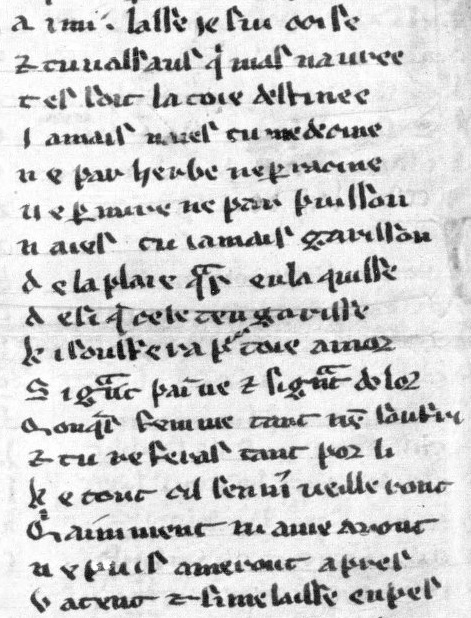 a imi lasse je sui ocise
⁊ tu vassaus qͥ mas nauree
t es soit la toie destinee
J amais naies tu medecine
n e par herbe ne ꝑ racine
n e ꝑ mire ne par puison
n aies tu iamais garison
d e la plaie qͣs en la quisse
d esi q̄ cele ten garisse
k i soufferra pͬ toie amor
S i gͣnt paīne ⁊ si gͣnt dolor
Conq̄s femme tant nē soufri
⁊ tu referas tant por li
k e tout cil sen mͥueilleront
Q aimment ni ame aront
n e puis ameront apres
V a tent ⁊ si me laisse en pes